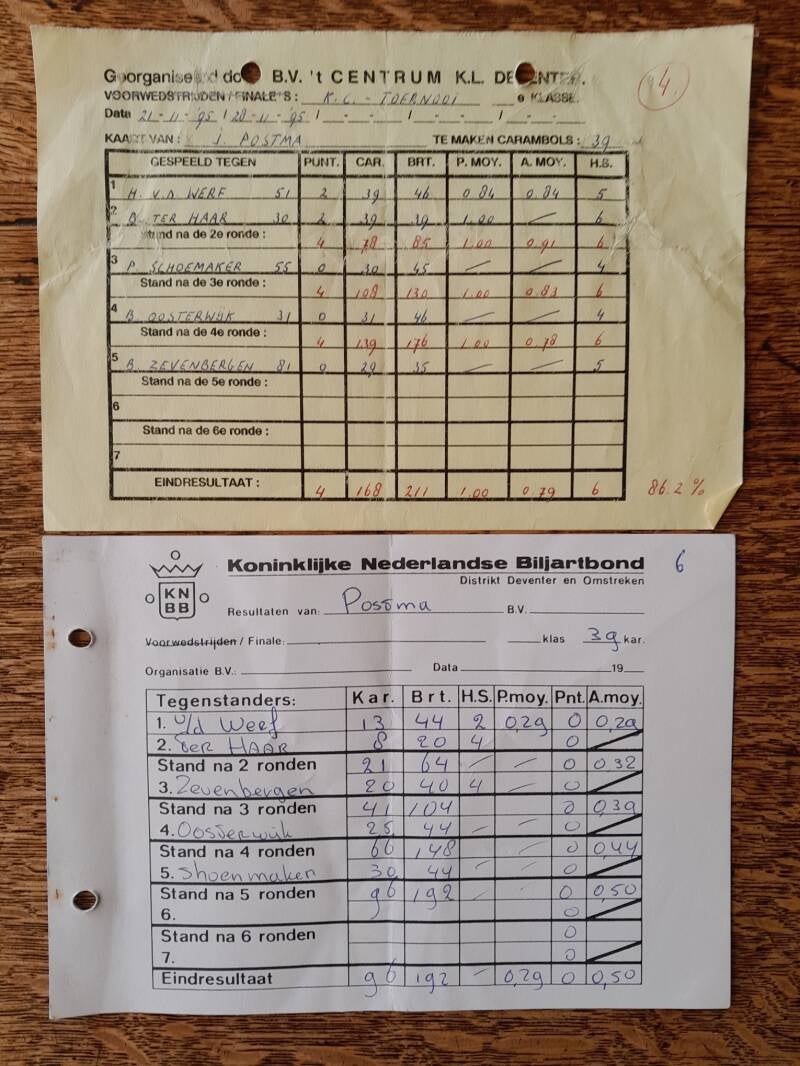 Georganiseerd door B.V. 't CENTRUM K.L. DEVENTER.
4.
VOORWEDSTRIJDEN / FINALE'S : K.C. - TOERNOOI e KLASSE.
Data 21-11-95 / 28-11-95 / - - / - - / - -
KAART VAN : J. POSTMA TE MAKEN CARAMBOLS : 39
GESPEELD TEGEN PUNT. CAR. BRT. P. MOY. A. MOY. H.S.
1 H. V.D. WERF 51 2 39 46 0.84 0.84 5
2 B. TER HAAR 30 2 39 39 1.00 — 6
Stand na de 2e ronde : 4 78 85 1.00 0.91 6
3 P. SCHOEMAKER 55 0 30 45 — — 4
Stand na de 3e ronde : 4 108 130 1.00 0.83 6
4 B. OOSTERWIJK 31 0 31 46 — — 4
Stand na de 4e ronde : 4 139 176 1.00 0.78 6
5 B. ZEVENBERGEN 81 0 29 35 — — 5
Stand na de 5e ronde :
6
Stand na de 6e ronde :
7
EINDRESULTAAT : 4 168 211 1.00 0.79 6 86.2 %
KN
BB
Koninklijke Nederlandse Biljartbond 6
Distrikt Deventer en Omstreken
Resultaten van: Postma B.V.
Voorwedstrijden / Finale: klas 39 kar.
Organisatie B.V.: Data 19
Tegenstanders: Kar. Brt. H.S. P.moy. Pnt. A.moy.
1. v/d Weef 13 44 2 0,29 0 0,29
2. Ter HAAR 8 20 4 0
Stand na 2 ronden 21 64 — — 0 0,32
3. Zevenbergen 20 40 4 — 0
Stand na 3 ronden 41 104 0 0,39
4. Oosterwijk 25 44 — — 0
Stand na 4 ronden 66 148 — — 0 0,44
5. Shoenmaken 30 44 — — 0
Stand na 5 ronden 96 192 — — 0 0,50
6. 0
Stand na 6 ronden 0
7. 0
Eindresultaat 96 192 — 0,29 0 0,50